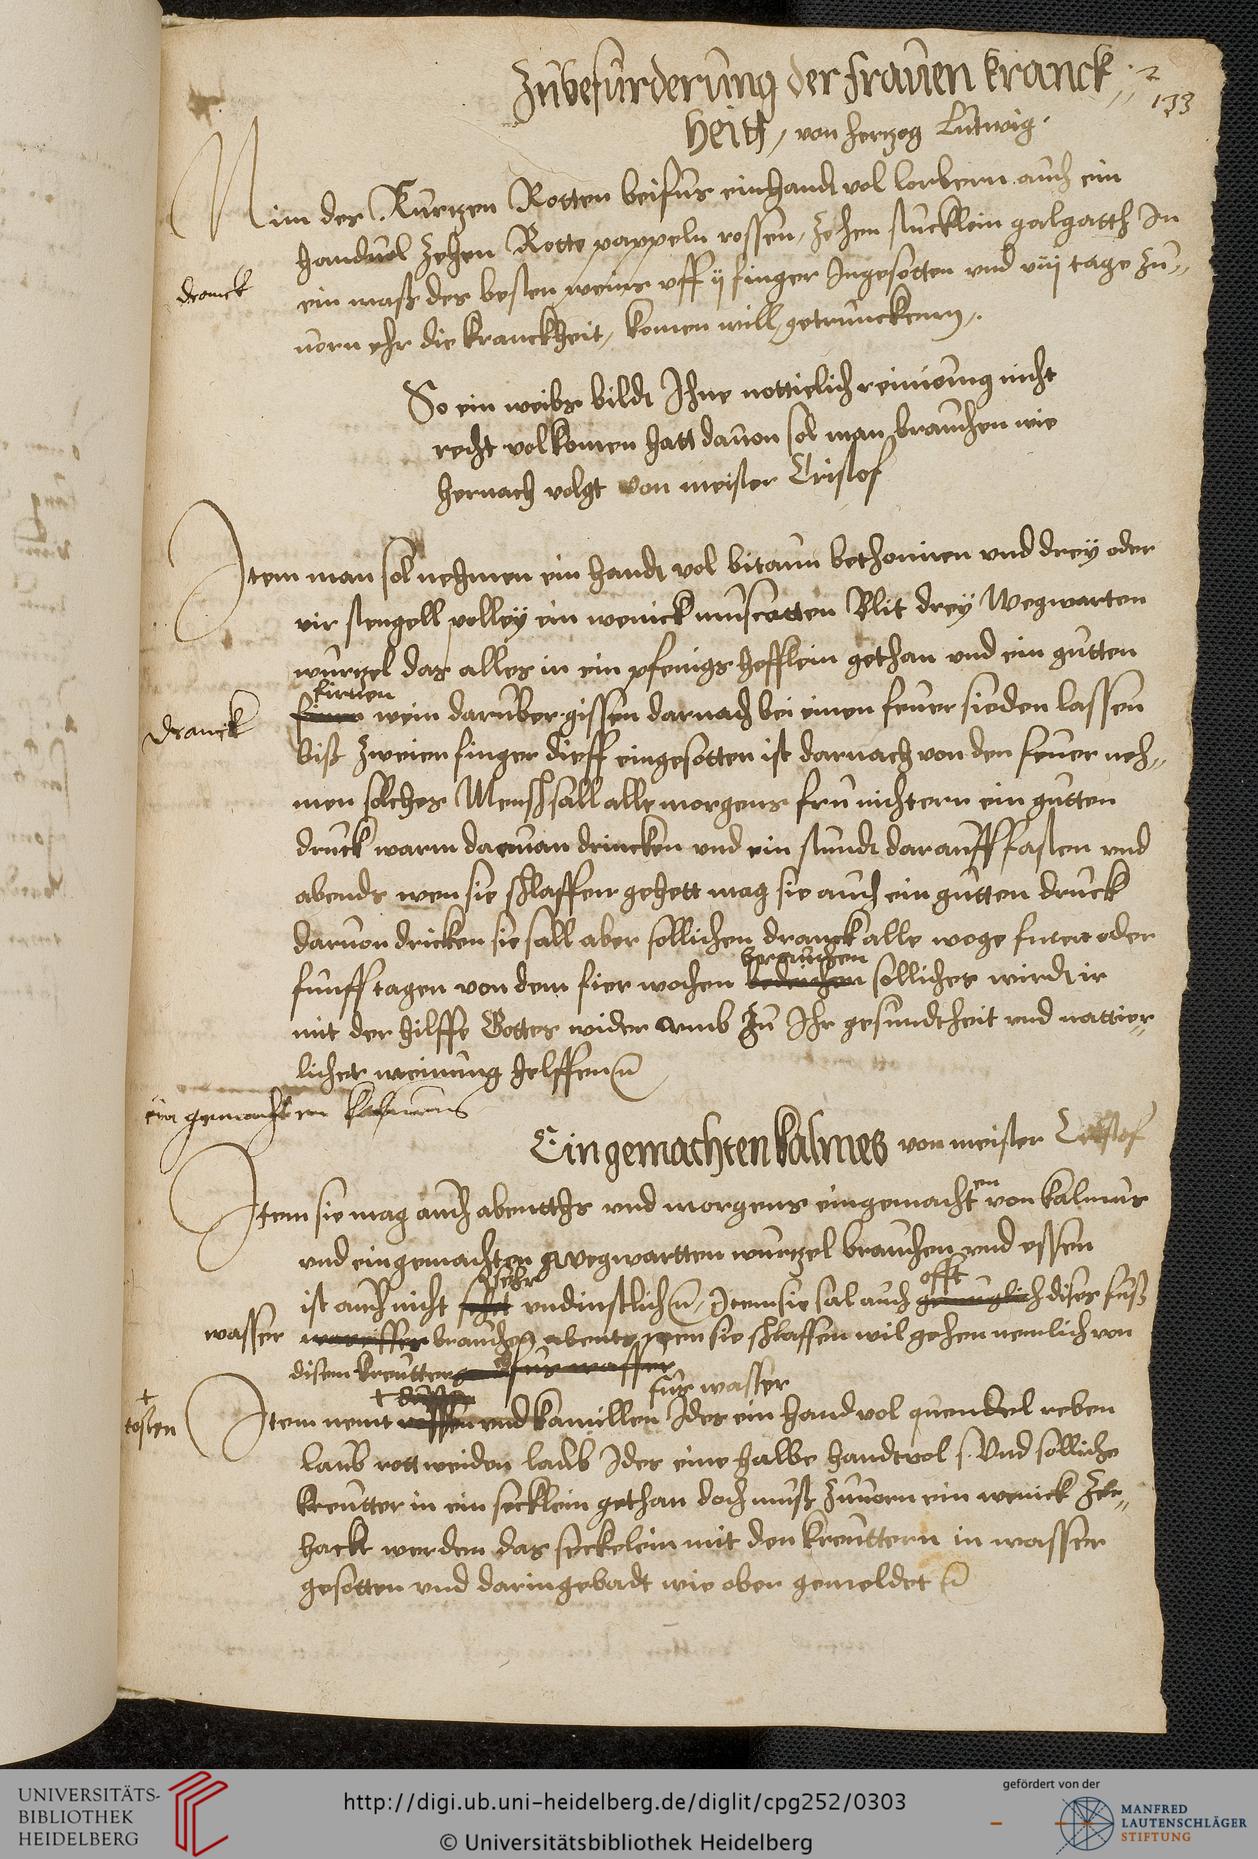 Zubefurderung der frauen kranck
2
133
heitt, von hertzog Ludwig.
Nim des Kurtzen Rotten beifus ein handt vol lorbern auch ein
handuol zehen Rotte pappeln rossen, zehen stucklein galgatth In
dranck
ein maß des besten weins vff ij finger Ingesotten vnd viij tage zu„
uorn ehr die kranckheit, komen will, getrunckenn.
So ein weibs bildt Ihre nottielich reiniung nicht
recht volkomen hatt dauon sol man brauchen wie
hernach volgt von meister Cristof
Item man sol nehmen ein handt vol bitaun bethonien vnd drey oder
vir stengell polley ein wenick muscatten Blit drey Wegwarten
wurtzel das alles in ein pfenigs hefflein gethan vnd ein gutten
firnen
dranck
wein daruber gissen darnach bei einen feuer sieden lassen
biß zweien finger dieff eingesotten ist darnach von den feuer neh„
men solches Mensch sall alle morgens fru nichtern ein gutten
druck warm daruan drincken vnd ein stundt darauff fasten vnd
abends wen sie schlaffen gehett mag sie auch ein gutten druck
daruon dricken sie sall aber sollichen dranck alle woge firer oder
brauchen
funff tagen von dem fier wochen solliches wirdt ir
mit der hilffe Gottes wider vmb zu Ihr gesundtheit vnd nattier„
licher reinung helffen
ein gemachten kalmus
Eingemachten kalmes von meister Cristof
Item sie mag auch abentths vnd morgens eingemachten von kalmus
vnd eingemachten wegwartten wurtzel brauchen vnd essen
sehr
offt
ist auch nicht vndinstlich, Item sie sal auch dises fuß
wasser
brauchen abents wen sie schlaffen wil gehen nemlich von
disen kreutter
fus wasser
+
tosten
Item nemt vnd kamillen Ides ein hand vol quendel reben
laub rott weiden laub Ides eine halbe handt vol Und solliche
kreutter in ein secklein gethan doch muß zuuorn ein wenick zer„
hackt werden das seckelein mit den kreuttern in wasser
gesotten vnd darin gebadt wie oben gemeldet
UNIVERSITÄTS-
BIBLIOTHEK
HEIDELBERG
http://digi.ub.uni-heidelberg.de/diglit/cpg252/0303
© Universitätsbibliothek Heidelberg
gefördert von der
MANFRED
LAUTENSCHLÄGER
STIFTUNG